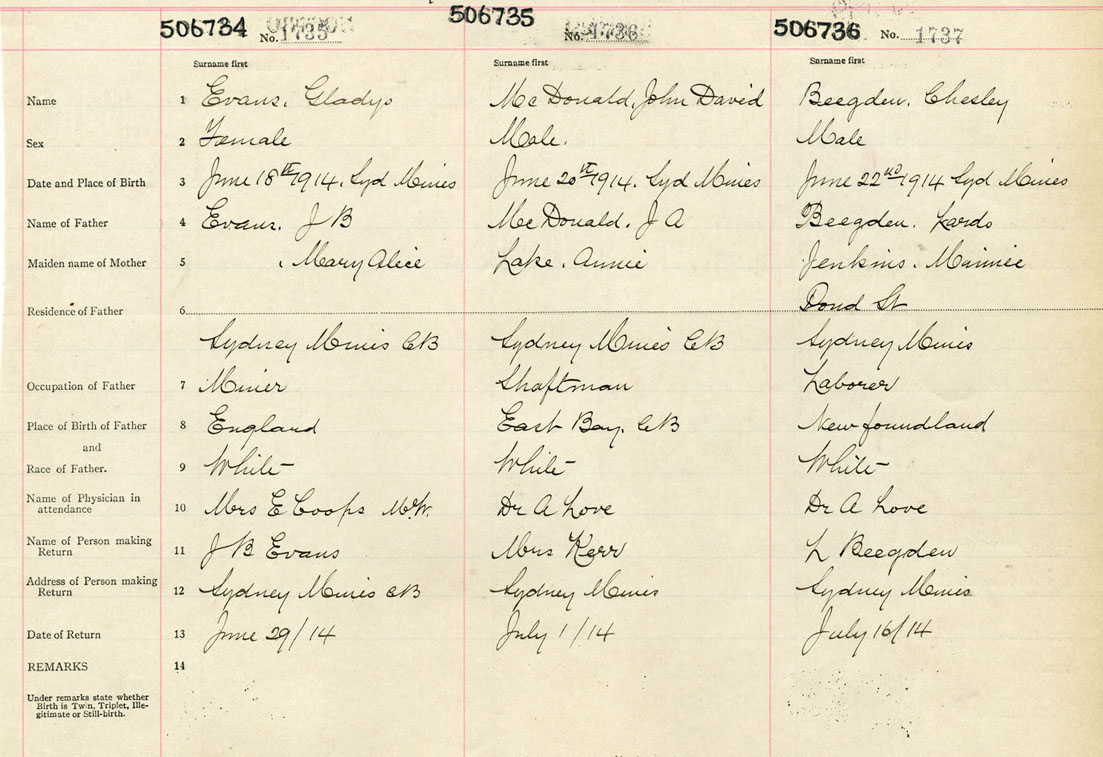 506734 No. 1735 506735 No. 1736 506736 No. 1737
Surname first Surname first Surname first
Name 1 Evans, Gladys McDonald, John David Beegden, Chesley
Sex 2 Female Male. Male
Date and Place of Birth 3 June 18th 1914. Syd Mines June 20th 1914. Syd Mines June 22nd 1914 Syd Mines
Name of Father 4 Evans, J B McDonald, J A Beegden,
Maiden name of Mother 5 , Mary Alice Lake, Annie Jenkins, Minnie
Pond St
Residence of Father 6
Sydney Mines CB Sydney Mines CB Sydney Mines
Occupation of Father 7 Miner Shaftman Laborer
Place of Birth of Father 8 England East Bay, CB Newfoundland
and
Race of Father. 9 White White White
Name of Physician in
attendance 10 Mrs E Coops M.W. Dr A Love Dr A Love
Name of Person making
Return 11 J B Evans Mrs Kerr L Beegden
Address of Person making
Return 12 Sydney Mines CB Sydney Mines Sydney Mines
Date of Return 13 June 29/14 July 1/14 July 16/14
REMARKS 14
Under remarks state whether
Birth is Twin, Triplet, Ille-
gitimate or Still-birth.